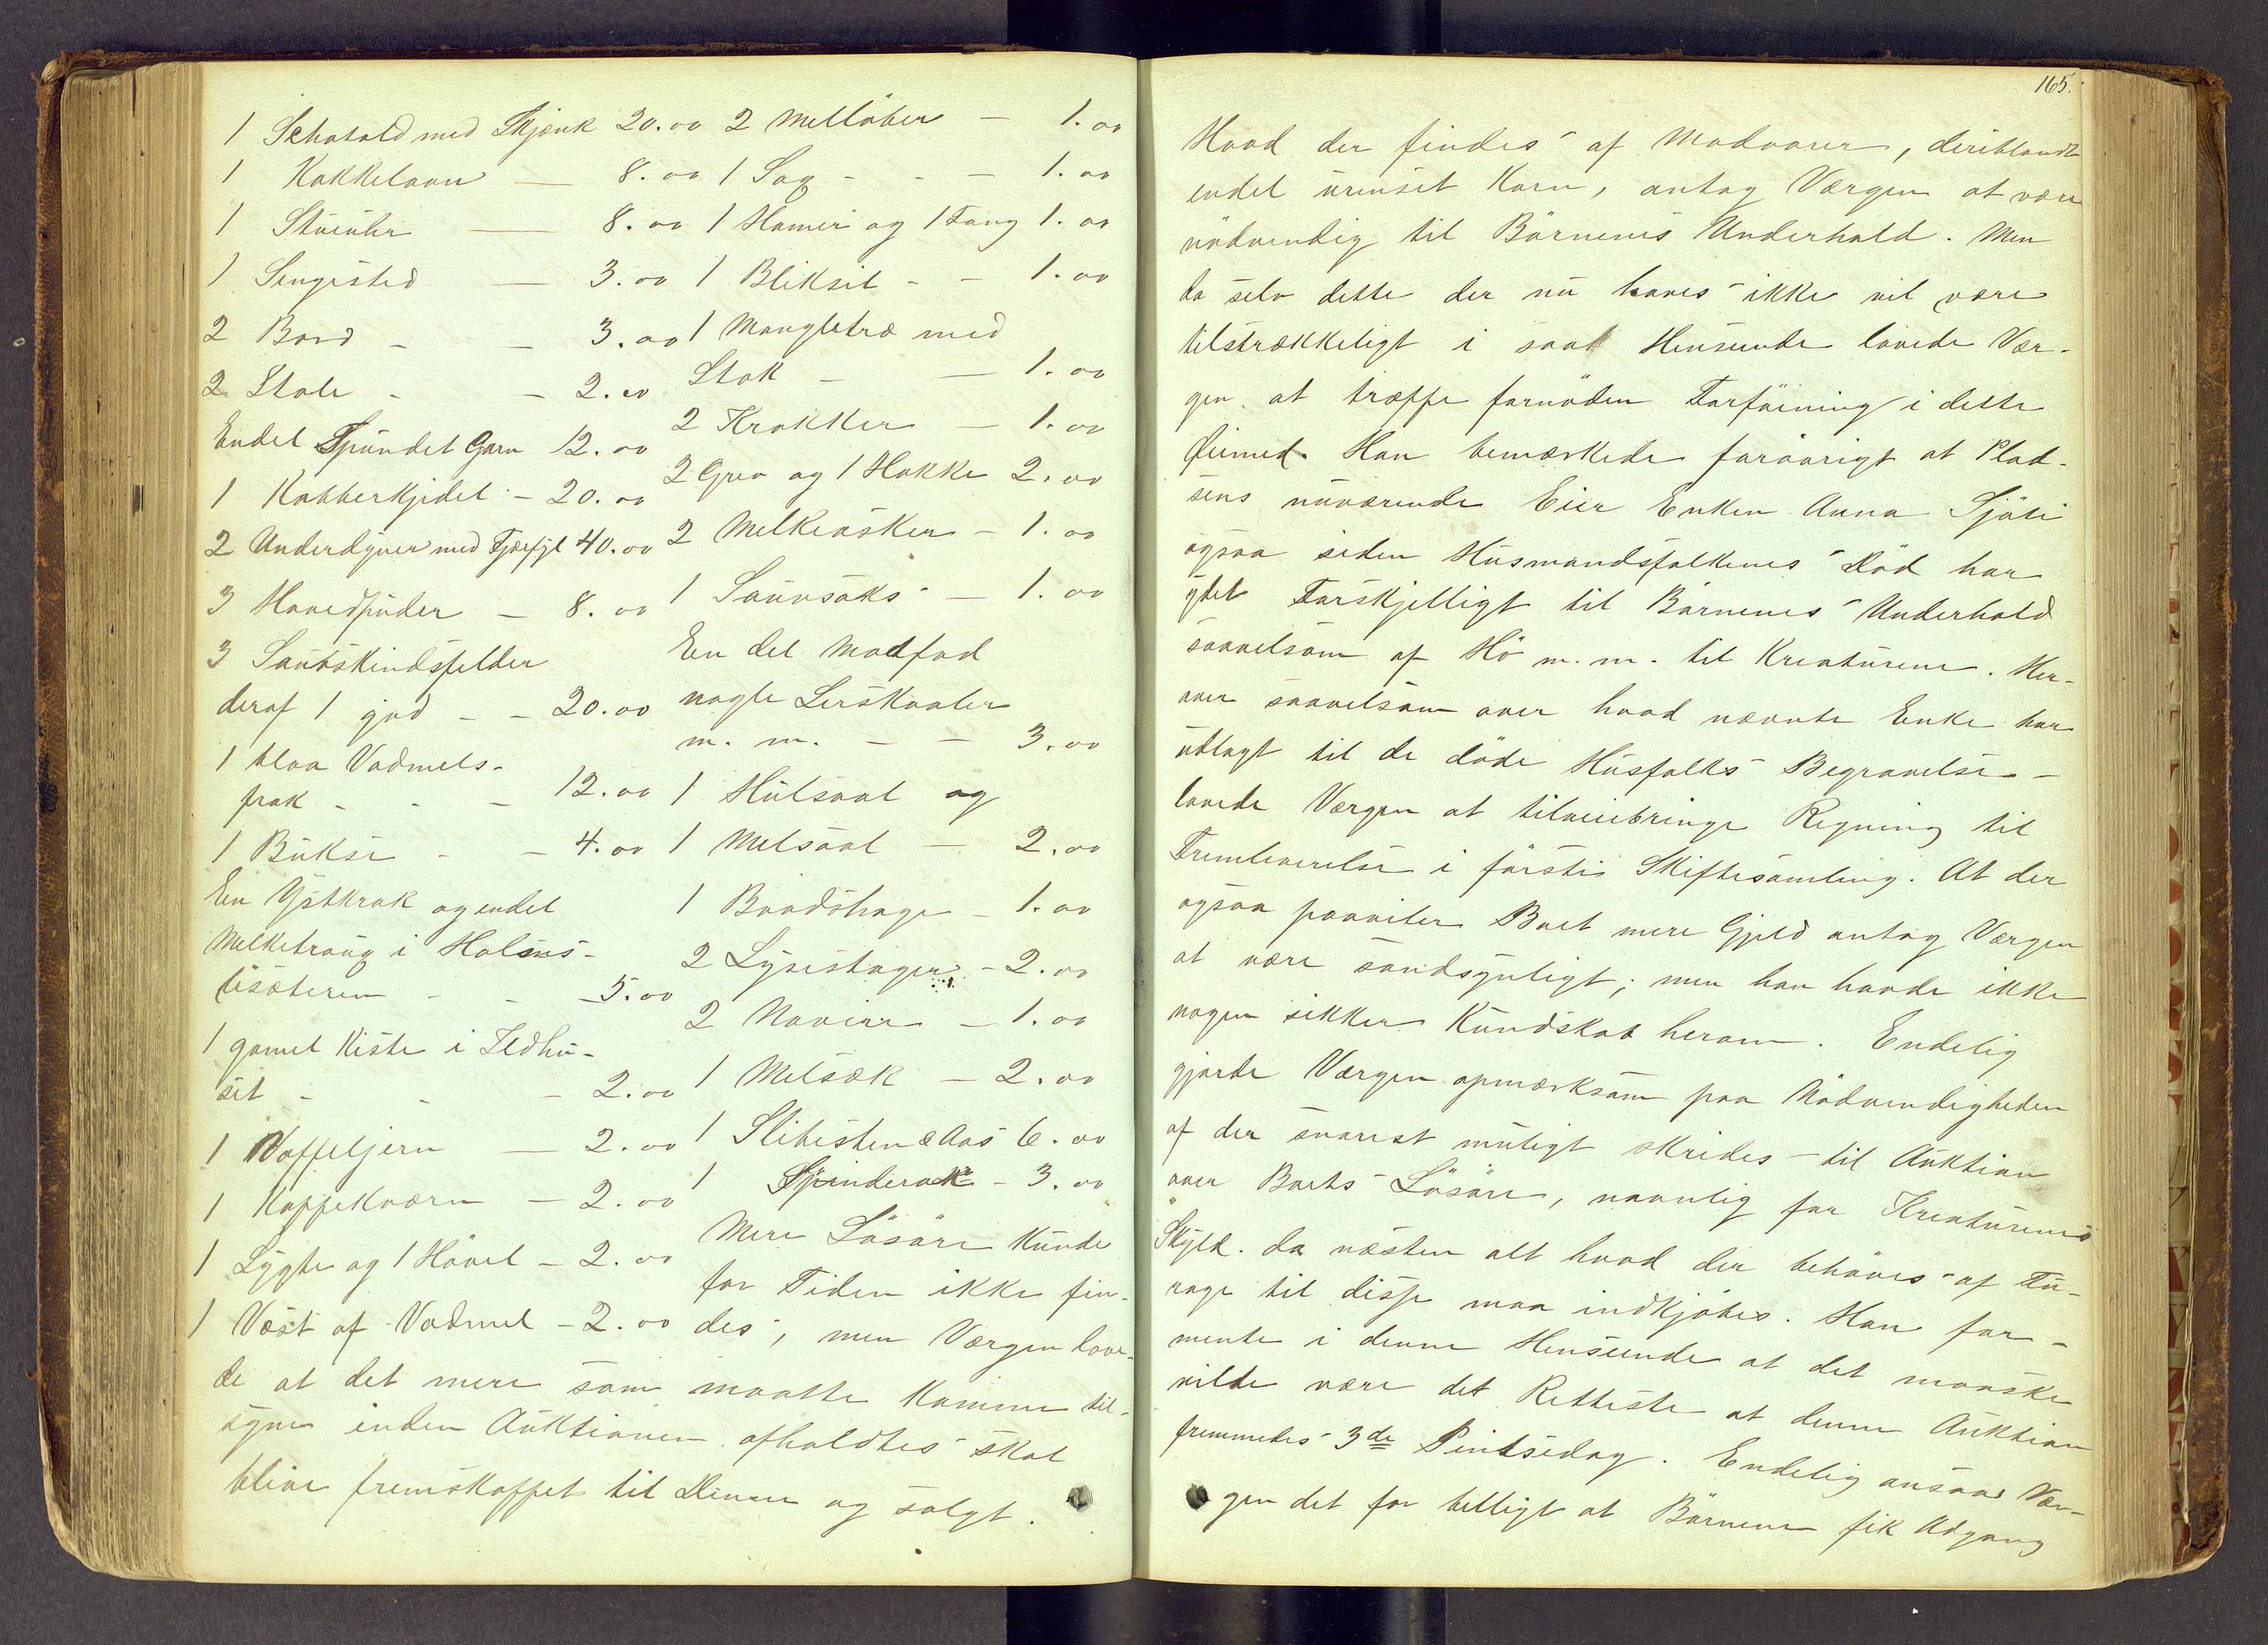 1 Schatold med Skjænk 20.00
1 Kakkelaavn — 8.00
1 Stueuhr — 8.00
1 Sengested — 3.00
2 Bord - - 3.00
2 Stole - - 2.00
Endel Spundet Garn 12.00
1 Kobberkjedel - 20.00
2 Underdyner med Fjær 40.00
3 Hovedpuder - 8.00
3 Saueskindsfelder
deraf 1 god - - 20.00
1 blaa Vadmels-
frak - - - 12.00
1 Bukse - - 4.00
En Ystkrak og endel
Melketraug i
- - 5.00
1 gamel Kiste i Ildhu-
set - - - 2.00
1 Vaffeljern — 2.00
1 Kaffekværn — 2.00
1 Lygte og 1 Hövel - 2.00
1 Vest af Vadmel - 2.00
2 Melløber — 1.00
1 Sag - - - 1.00
1 Hamer og 1 Tang 1.00
1 Bliksil - - 1.00
1 Mangletræ med
Stok - — 1.00
2 Krakker — 1.00
2 Grev og 1 Hakke 2.00
2 Melkeasker - 1.00
1 Sauesaks - 1.00
En del Madfad
nogle Lerskaaler
m. m. - - 3.00
1 Hulsaal og
1 Melsaal — 2.00
1 - 1.00
2 Lysestager - 2.00
2 Navirer - 1.00
1 Melsæk - 2.00
1 Slibesten & Aas 6.00
1 Spinderok - 3.00
Mere Lösöre kunde
for Tiden ikke fin-
des, men Værgen love-
de at det mere som maatte komme til-
syne inden Auktionen afholdtes skal
blive fremskaffet til Denne og solgt.
165.
Hvad der findes af Madvarer, deriblandt
endel urenset Korn, antog Værgen at være
nödvendig til Börnenes Underhold. Men
da selv dette der nu haves ikke vil være
tilstrækkeligt i saat Henseende lovede Vær-
gen at træffe fornöden Forföining i dette
Öiemed. Han bemærkede foröövrigt at Plad-
sens nuværende Eier Enken Anna Sjöli
ogsaa siden Husmandsfolkenes Död har
ydet Forskjelligt til Börnenes Underhold
saavelsom af Hö m.m. til Kreaturene. Her-
over saavelsom over hvad nævnte Enke har
udlagt til de döde Husfolks Begravelse -
lovede Værgen at tilveiebringe Regning til
Fremleverelse i förste Skiftesamling. At der
ogsaa paaviler Boet mere Gjeld antog Værgen
at være sandsynligt; men han havde ikke
nogen sikker Kundskab herom. Endelig
gjorde Værgen opmærksom paa Nödvendigheden
af der snarest muligt skrides til Auktion
over Boets Lösöre, navnlig for Kreaturenes
Skyld. da næsten alt hvad der behöves af Fu-
rage til disse maa indkjöbes. Han for-
mente i denne Henseende at det maaske
vilde være det Retteste at denne Auktion
fremmedes 3de Pintsedag. Endelig ansaa Vær-
gen det for billigt at Börnene fik Adgang